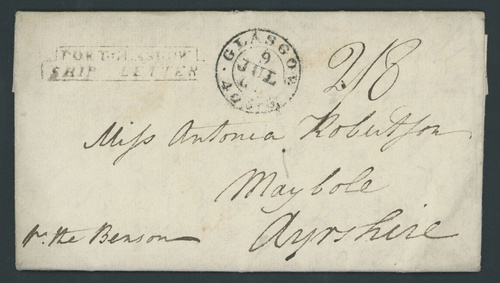 PORT-GLASGOW
SHIP LETTER
GLASGOW
9
JUL
2/8
Miss Antonia Robertson
Maybole
Ayrshire
pr. the Benson